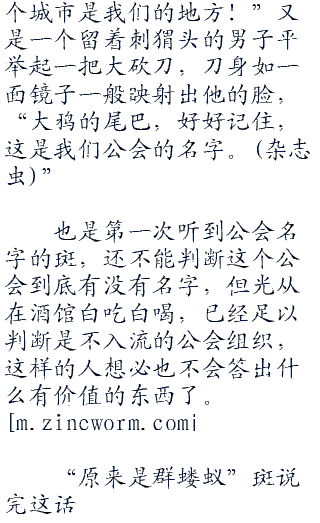 个城市是我们的地方！”又
是一个留着刺猬头的男子平
举起一把大砍刀，刀身如一
面镜子一般映射出他的脸，
“大鸦的尾巴，好好记住，
这是我们公会的名字。(杂志
虫)”
也是第一次听到公会名
字的斑，还不能判断这个公
会到底有没有名字，但光从
在酒馆白吃白喝，已经足以
判断是不入流的公会组织，
这样的人想必也不会答出什
么有价值的东西了。
[m.zincworm.com|
“原来是群蝼蚁”斑说
完这话